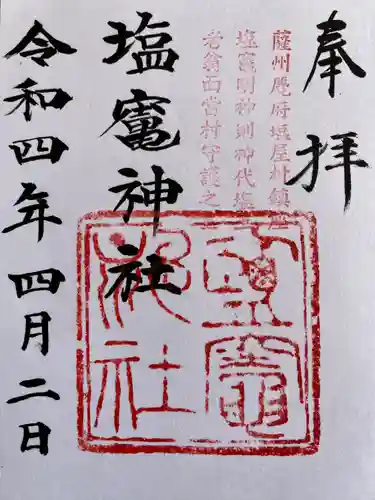 奉拝
薩州麑府塩屋村鎮座
塩竈明神則神代塩
老翁而當村守護之
塩竈神社
令和四年四月二日
塩竈
神社